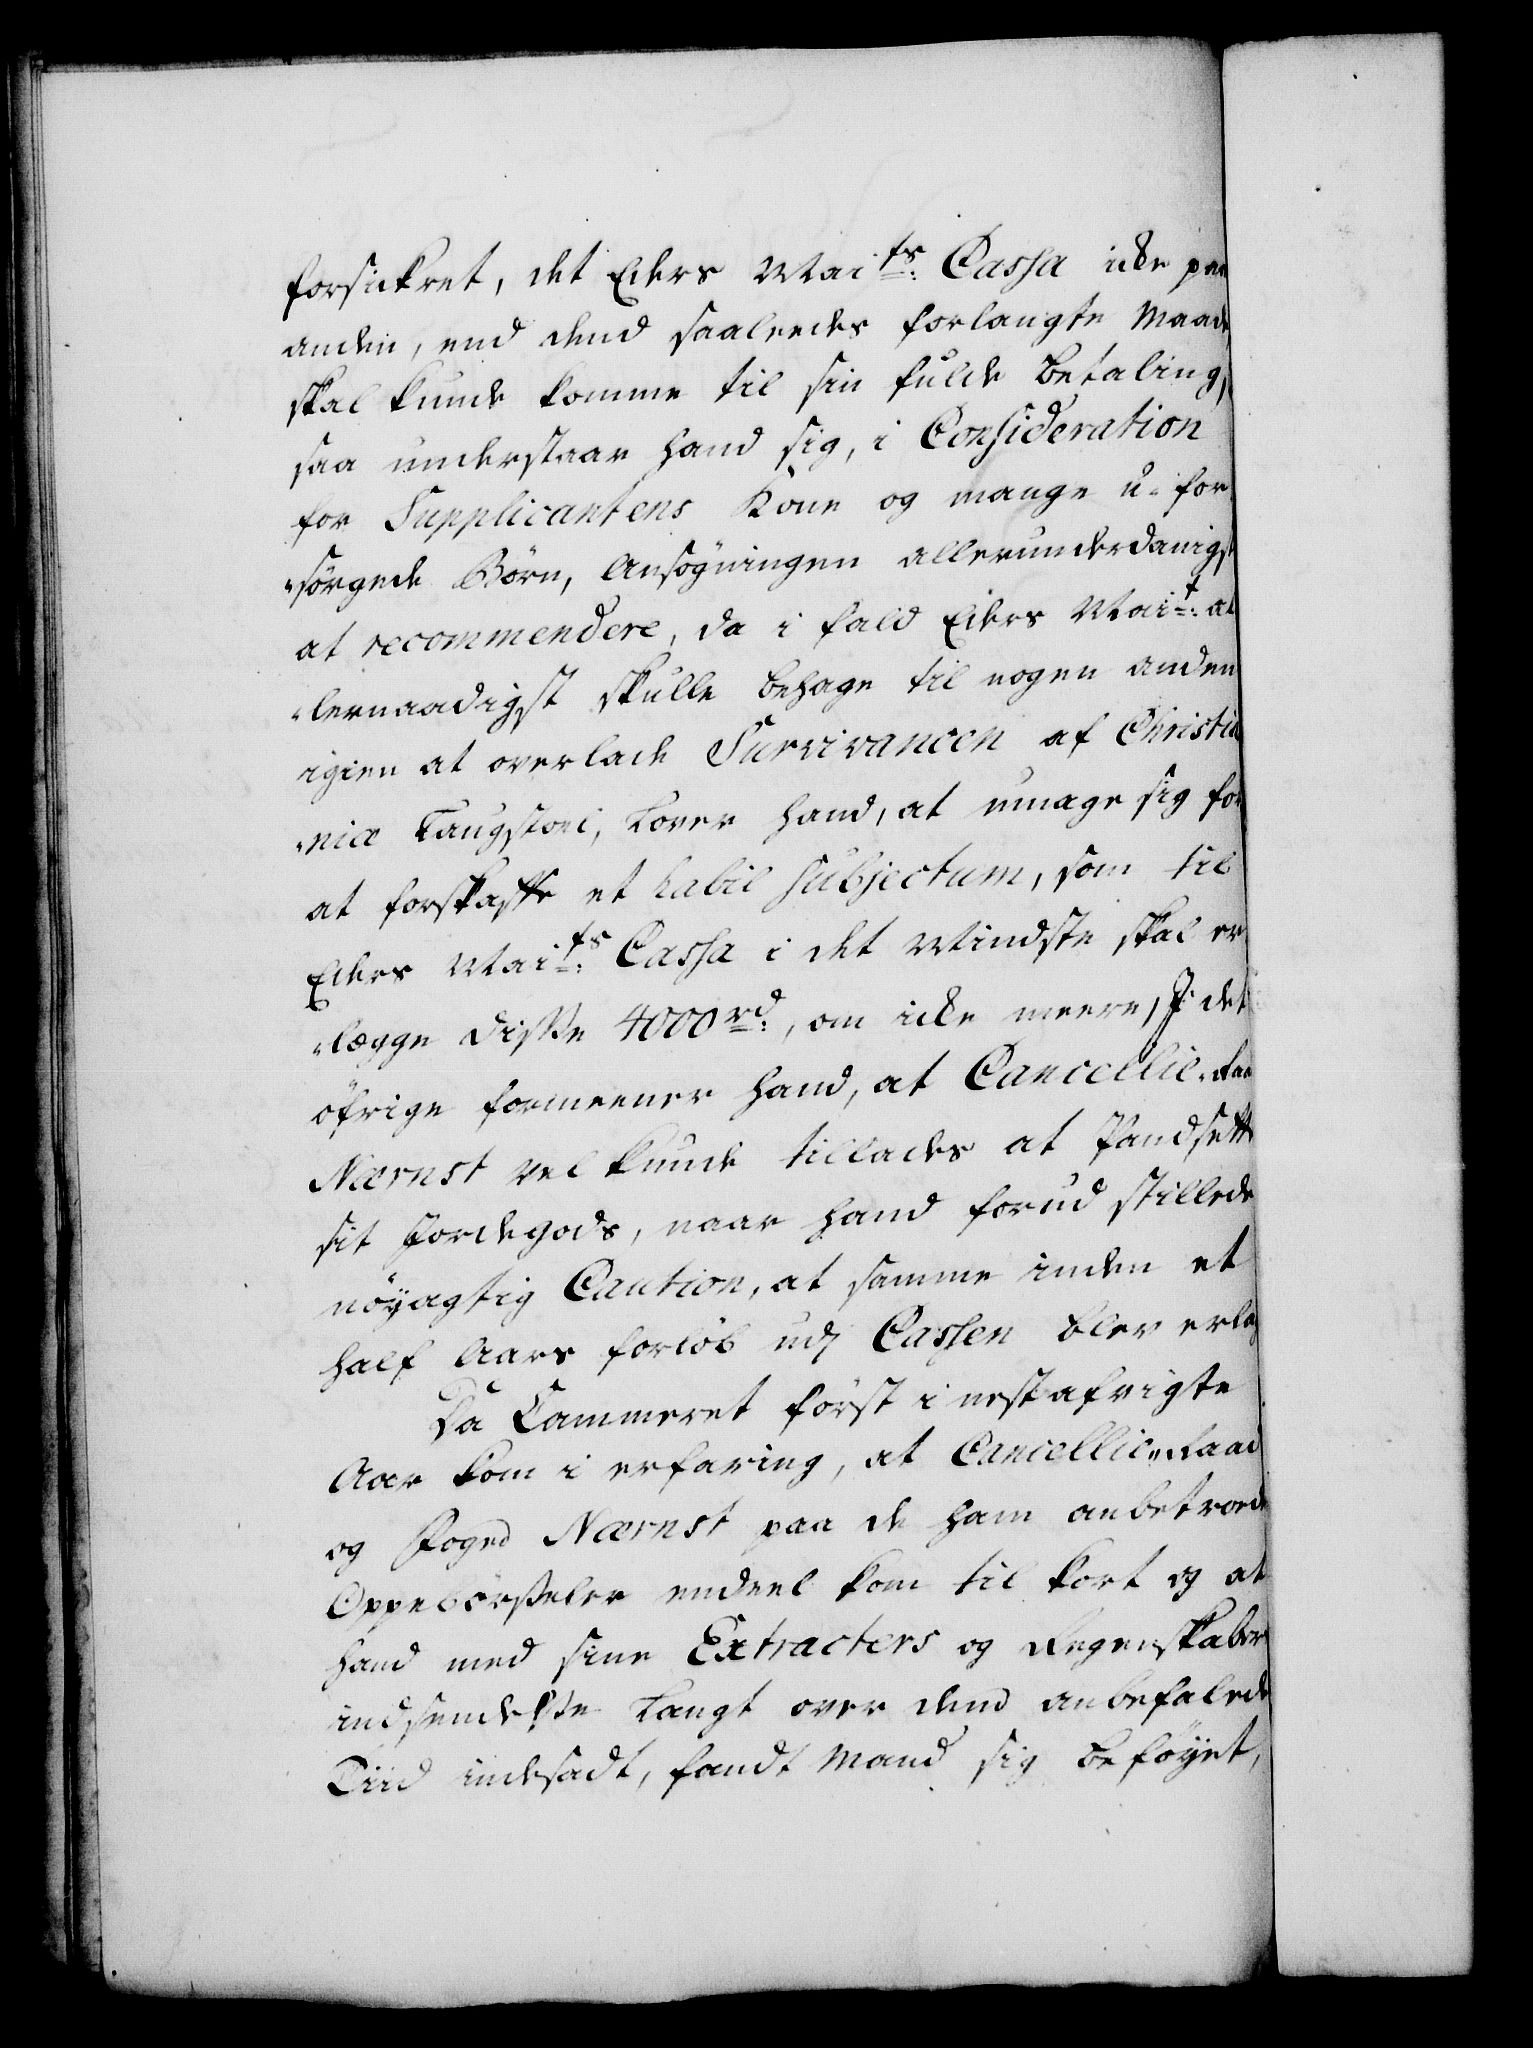 forsickret, det Eders Mai¨ts: Cassa icke paa
anden, end dend saaleedes forlangte Maade,
skal kunde komme til sin fulde betaling,
saa understaar hand sig, i Consideration
for Supplicantens Kone og mange u-for
"sørgede Børn, Ansøgningen allerunderdanigst
at recommendere, da i fald Eders Mait: al
"lernaadigst skulle behage til nogen anden
igien at overlade Survivancen af Christia
"niæ Laugstoel, lover hand, at umage sig for
at forskaffe et habil subjectum, som til
Eders Maits: Cassa i det Mindste skal er
"lægge disse 4000 rd:, om icke meere, J det
øfrige formeener hand, at Cancellie-Raa
Nærnst vel kunde tillades at Pandsette
sit Jordegods, naar hand forud stillede
nøyagtig Caution, at samme inden et
half Aars forløb udj Cassen blev erlag
Da Cammeret først i nestafvigte
Aar kom i erfaring, at Cancellie-Raad
og Foged Nærnst paa de ham anbetroede
Oppebørseler endeel kom til kort og at
hand med sine Extracters og Regenskabers
indsendelse langt over dend anbefalede
Tiid indesadt, fandt Mand sig beføyet,